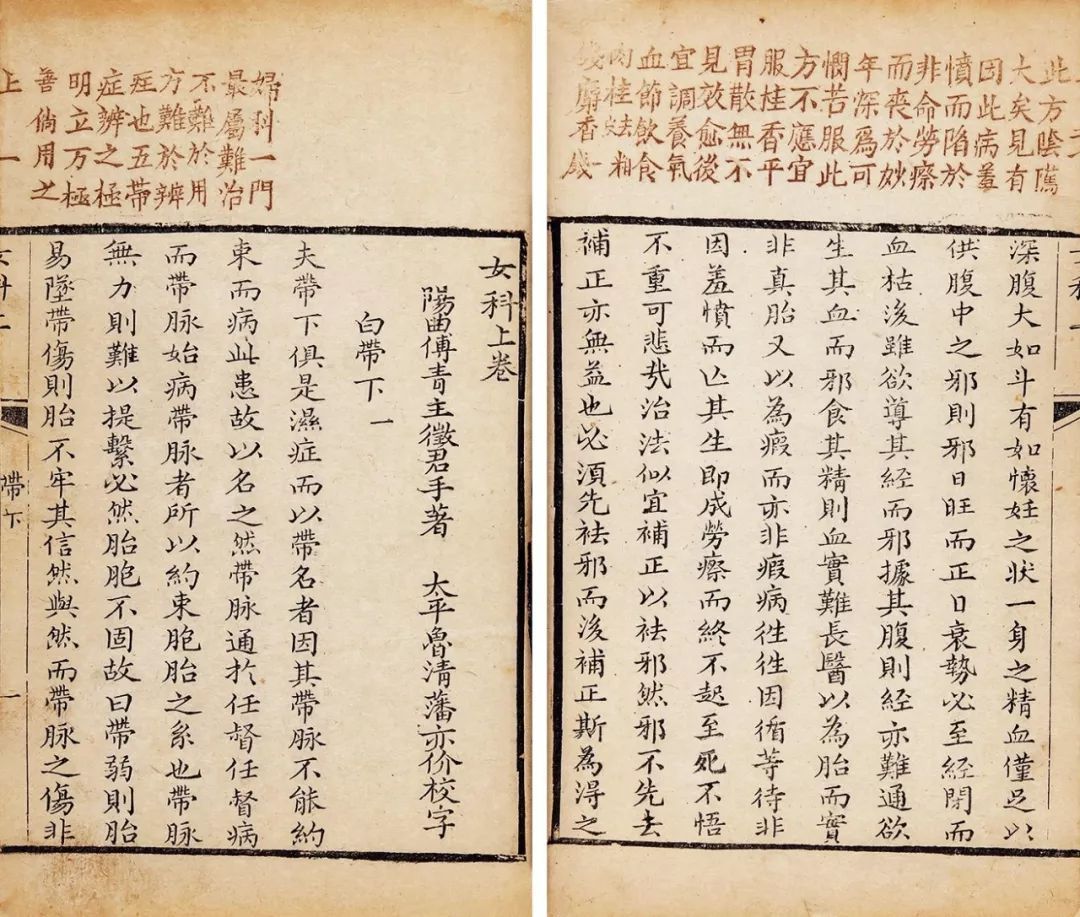 婦科一門
最屬難治
不難於用
方難於辨
症也五帶
症辨之極
明立方極
善倘用之
上一
女科上卷
陽曲傅青主徵君手著 太平魯清藩亦价校字
白帶下 一
夫帶下俱是濕症而以帶名者因其帶脉不能約
束而病此患故以名之然帶脉通於任督任督病
而帶脉始病帶脉者所以約束胞胎之系也帶脉
無力則難以提繫必然胎胞不固故曰帶弱則胎
易墜帶傷則胎不牢其信然與然而帶脉之傷非
帶下 一
此方陰隲
大矣見有
因此病羞
憤而陷於
非命勞瘵
而喪於妙
年深為可
憫苦服此
方不應宜
服桂香平
胃散無不
見效愈後
宜調養氣
血節飲食
肉桂去粗
麝香
深腹大如斗有如懷妊之狀一身之精血僅足以
供腹中之邪則邪日旺而正日衰勢必至經閉而
血枯後雖欲導其經而邪據其腹則經亦難通欲
生其血而邪食其精則血實難長醫以為胎而實
非真胎又以為瘕而亦非瘕病徃徃因循等待非
因羞憤而亡其生即成勞瘵而終不起至死不悟
不重可悲㢤治法似宜補正以袪邪然邪不先去
補正亦無益也必須先袪邪而後補正斯為淂之